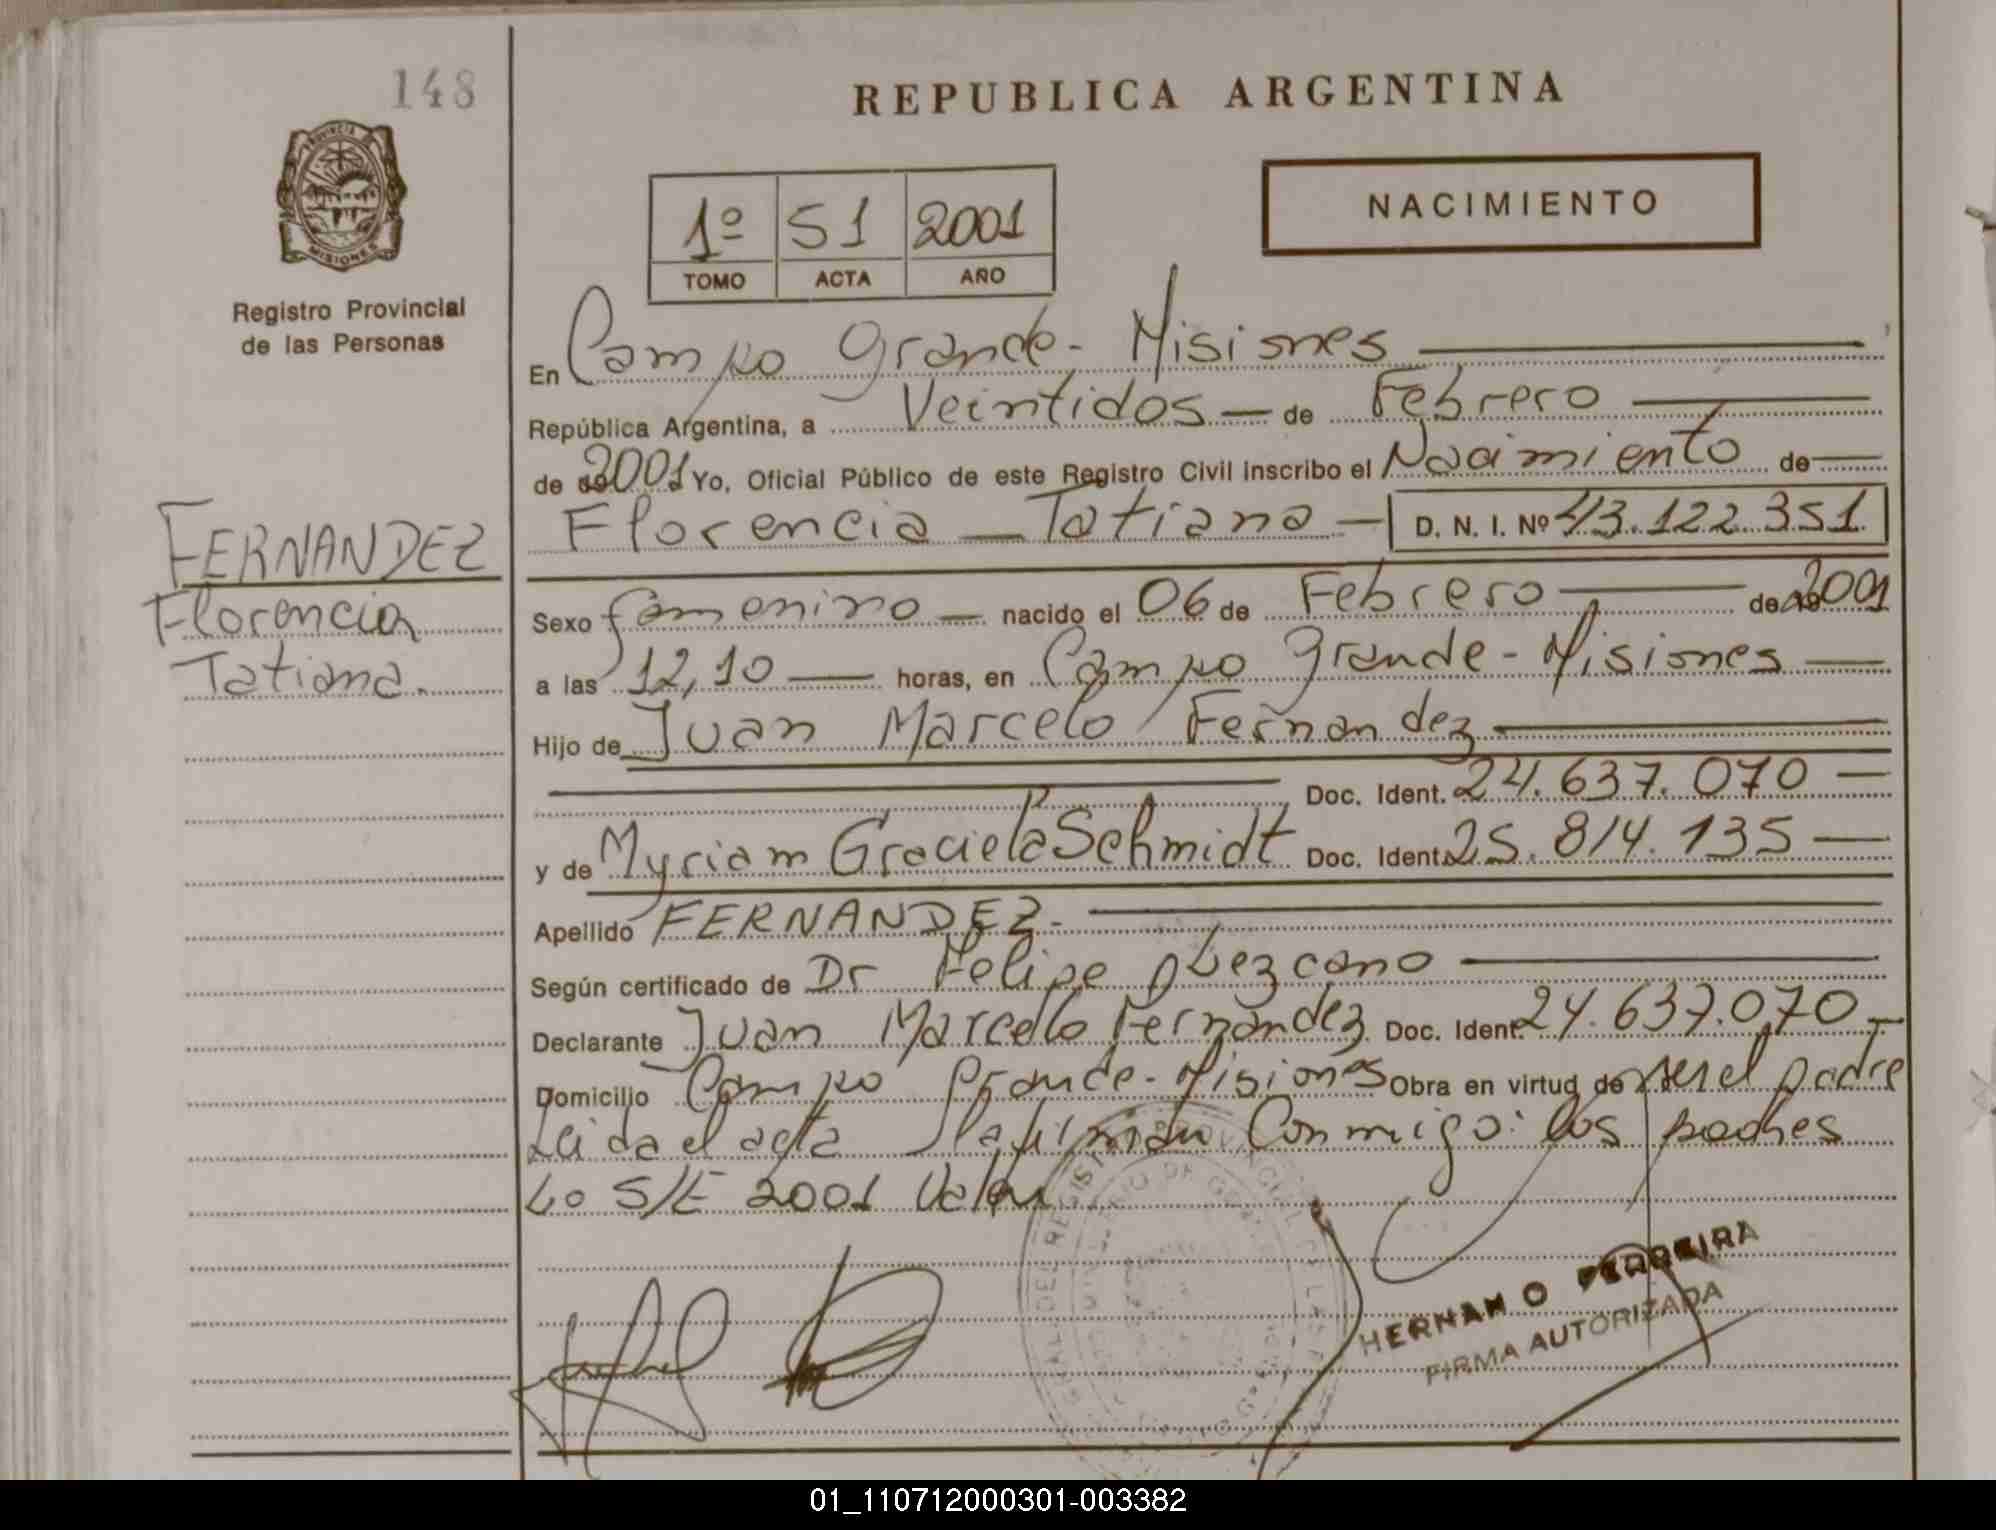 148
REPUBLICA ARGENTINA
PROVINCIA DE
MISIONES
Registro Provincial
de las Personas
1º 51 2001
TOMO ACTA AÑO
NACIMIENTO
En Campo Grande - Misiones
República Argentina, a Veintidos — de Febrero
de 2001 Yo, Oficial Público de este Registro Civil inscribo el Nacimiento de
Florencia Tatiana — D. N. I. Nº 43.122.351
FERNANDEZ
Florencia
Tatiana.
Sexo femenino — nacido el 06 de Febrero de 2001
a las 12,10 — horas, en Campo Grande - Misiones —
Hijo de Juan Marcelo Fernandez
Doc. Ident. 24.637.070 —
y de Myriam Graciela Schmidt Doc. Ident. 25.814.135 —
Apellido FERNANDEZ.
Según certificado de Dr Felipe Lezcano
Declarante Juan Marcelo Fernandez Doc. Ident. 24.637.070 —
Domicilio Campo Grande - Misiones Obra en virtud de ser el padre
Leida el acta la firman Conmigo: los padres
Lo S/E 2001 Vale
HERNAN O FERREIRA
FIRMA AUTORIZADA
01_110712000301-003382